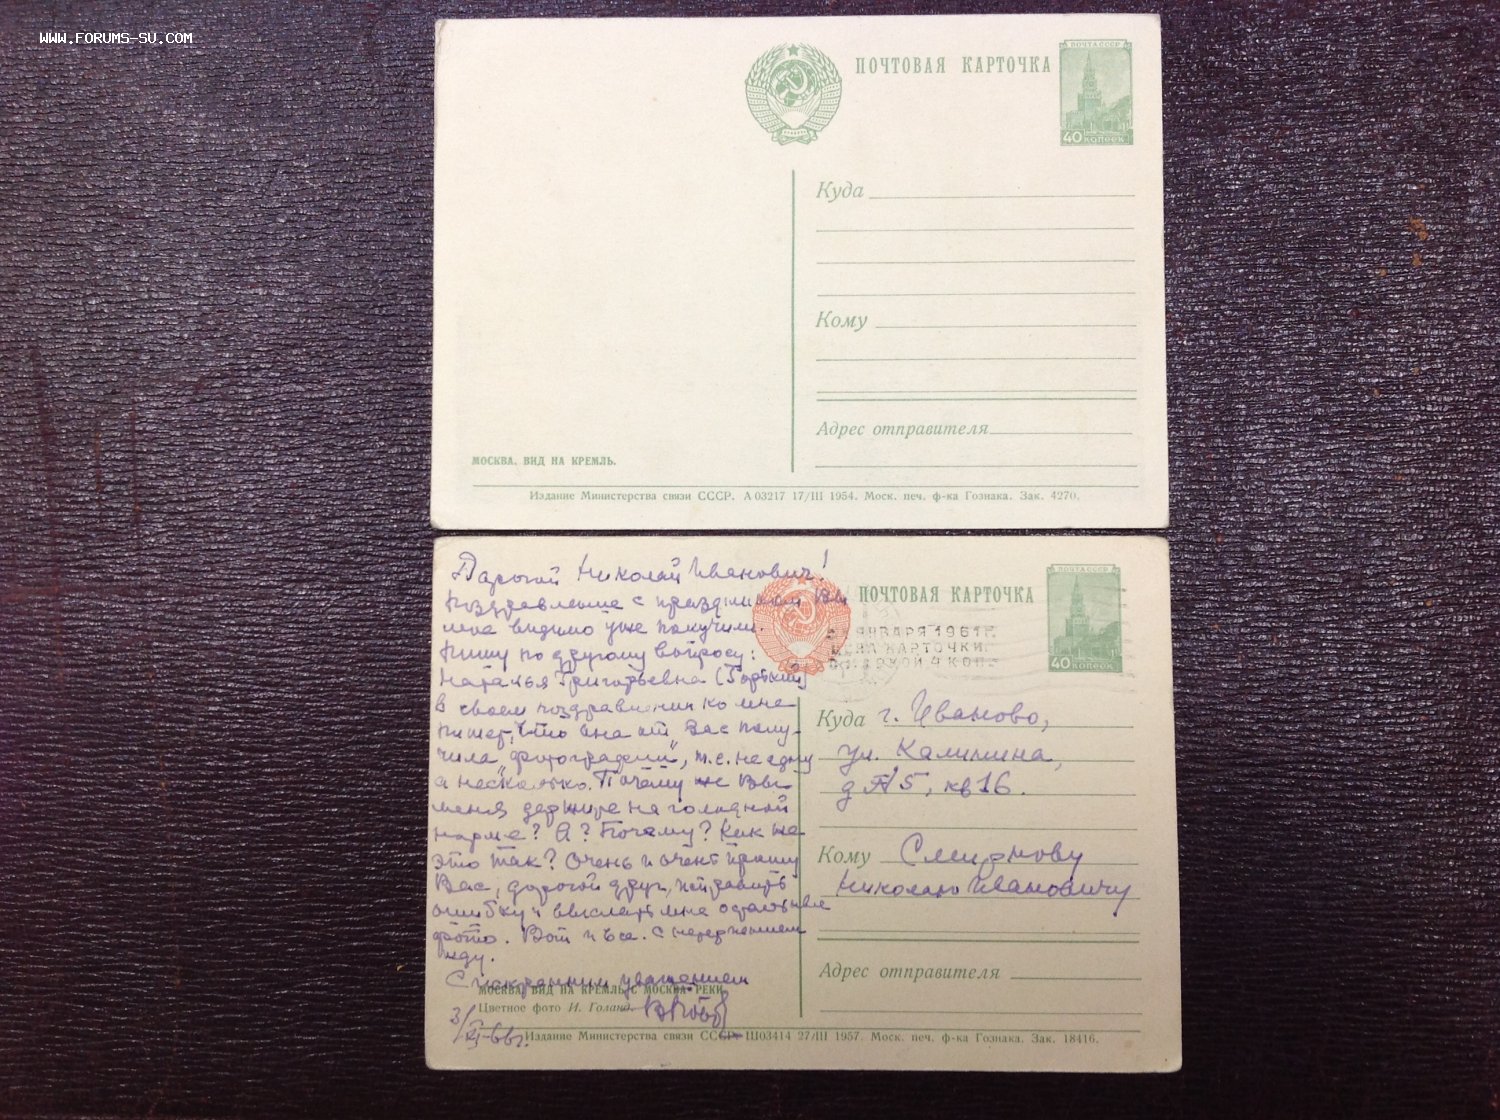 WWW.FORUMS-SU.COM
ПОЧТОВАЯ КАРТОЧКА
ПОЧТА СССР
40 КОПЕЕК
Куда
Кому
Адрес отправителя
МОСКВА. ВИД НА КРЕМЛЬ.
Издание Министерства связи СССР. А 03217 17/III 1954. Моск. печ. ф-ка Гознака. Зак. 4270.
Дорогой Николай Иванович!
Поздравление с праздником Вы
мое видимо уже получили.
Пишу по другому вопросу:
Наталья Григорьевна
в своем поздравлении ко мне
пишет, что она от Вас полу-
чила „фотографии", т.е. не одну
а несколько. Почему же Вы
меня держите на голодной
норме? А? Почему? Как же
это так? Очень и очень прошу
Вас, дорогой друг, исправить
ошибку и выслать мне остальные
фото. Вот и все. С нетерпением
жду.
С искренним уважением
3/XI-66г.
МОСКВА. ВИД НА КРЕМЛЬ С МОСКВА-РЕКИ
Цветное фото И. Голанд.
Издание Министерства связи СССР Ш03414 27/III 1957. Моск. печ. ф-ка Гознака. Зак. 18416.
ПОЧТОВАЯ КАРТОЧКА
ПОЧТА СССР
40 КОПЕЕК
ЯНВАРЯ 1961 Г.
ЦЕНА КАРТОЧКИ
С МАРКОЙ 4 КОП.
Куда г. Иваново,
ул. Калинина,
д № 5, кв 16.
Кому Смирнову
Николаю Ивановичу
Адрес отправителя